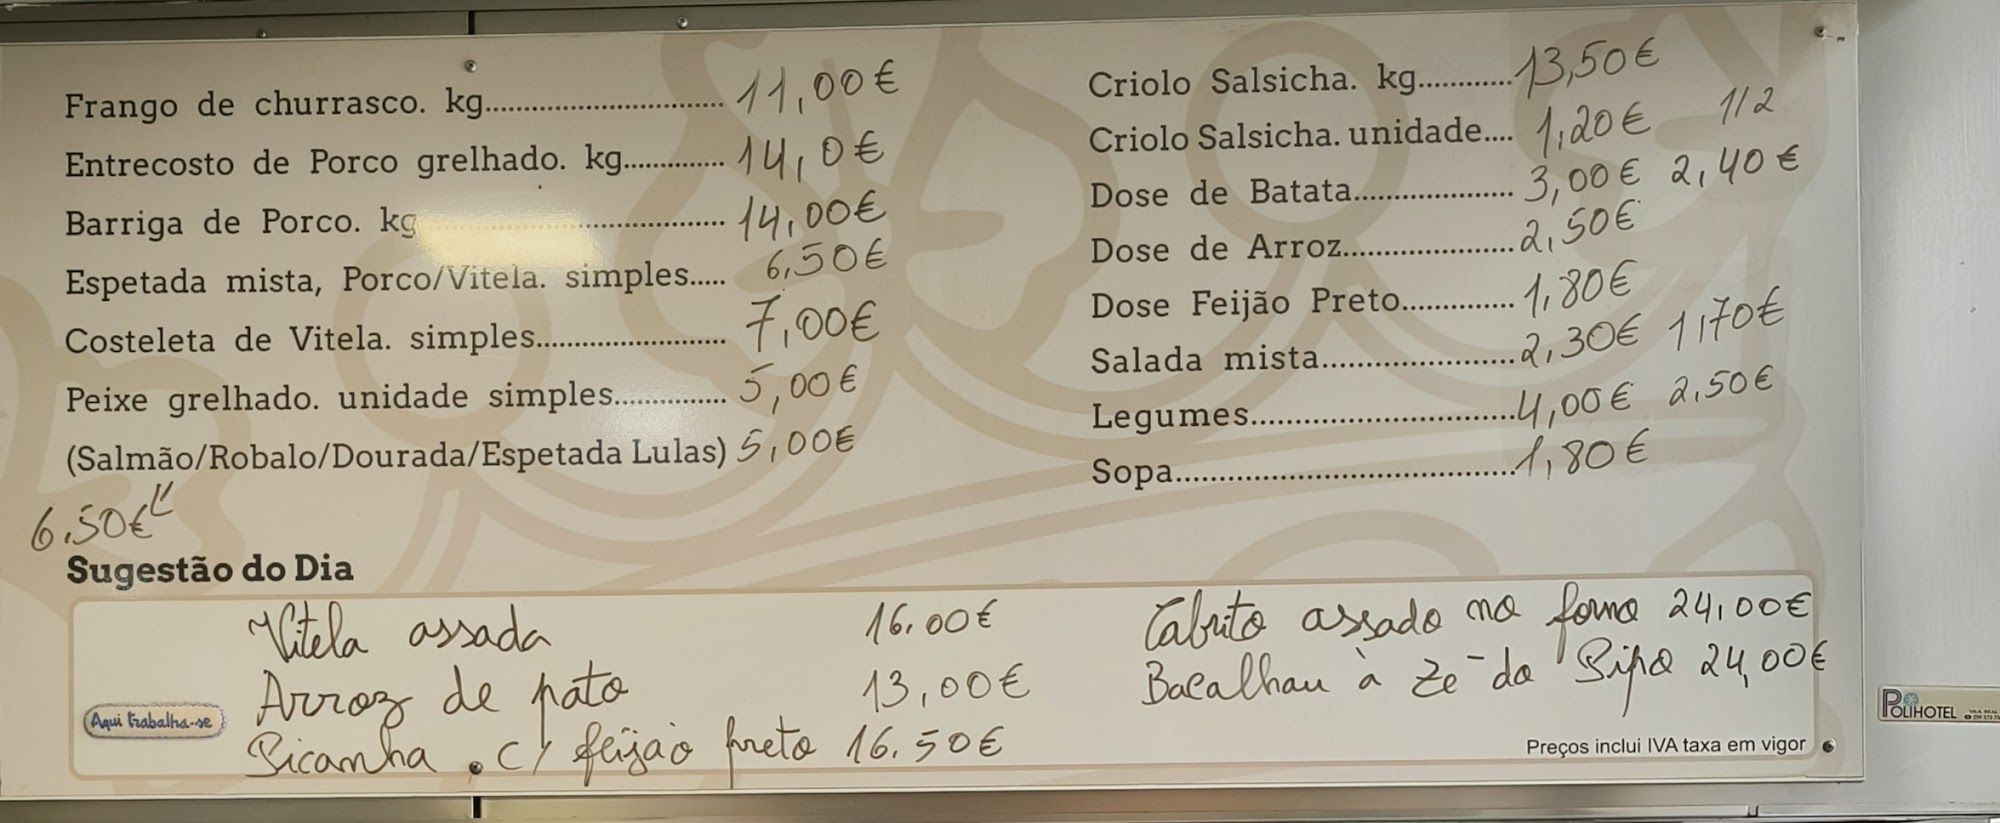 Frango de churrasco. kg............................ 11,00€
Entrecosto de Porco grelhado. kg............. 14,0€
Barriga de Porco. kg................................ 14,00€
Espetada mista, Porco/Vitela. simples..... 6,50€
Costeleta de Vitela. simples........................ 7,00€
Peixe grelhado. unidade simples.............. 5,00€
(Salmão/Robalo/Dourada/Espetada Lulas) 5,00€
6,50€
Criolo Salsicha. kg............ 13,50€
Criolo Salsicha. unidade.... 1,20€ 1/2
Dose de Batata................... 3,00€ 2,40€
Dose de Arroz.................... 2,50€
Dose Feijão Preto............. 1,80€
Salada mista...................... 2,30€ 1,70€
Legumes.............................. 4,00€ 2,50€
Sopa...................................... 1,80€
Sugestão do Dia
Vitela assada 16.00€
Arroz de pato 13,00€
Picanha . c/ feijão preto 16.50€
Cabrito assado no forno 24,00€
Bacalhau à Zé-do Pipo 24,00€
Aqui trabalha-se
Preços inclui IVA taxa em vigor
POLIHOTEL